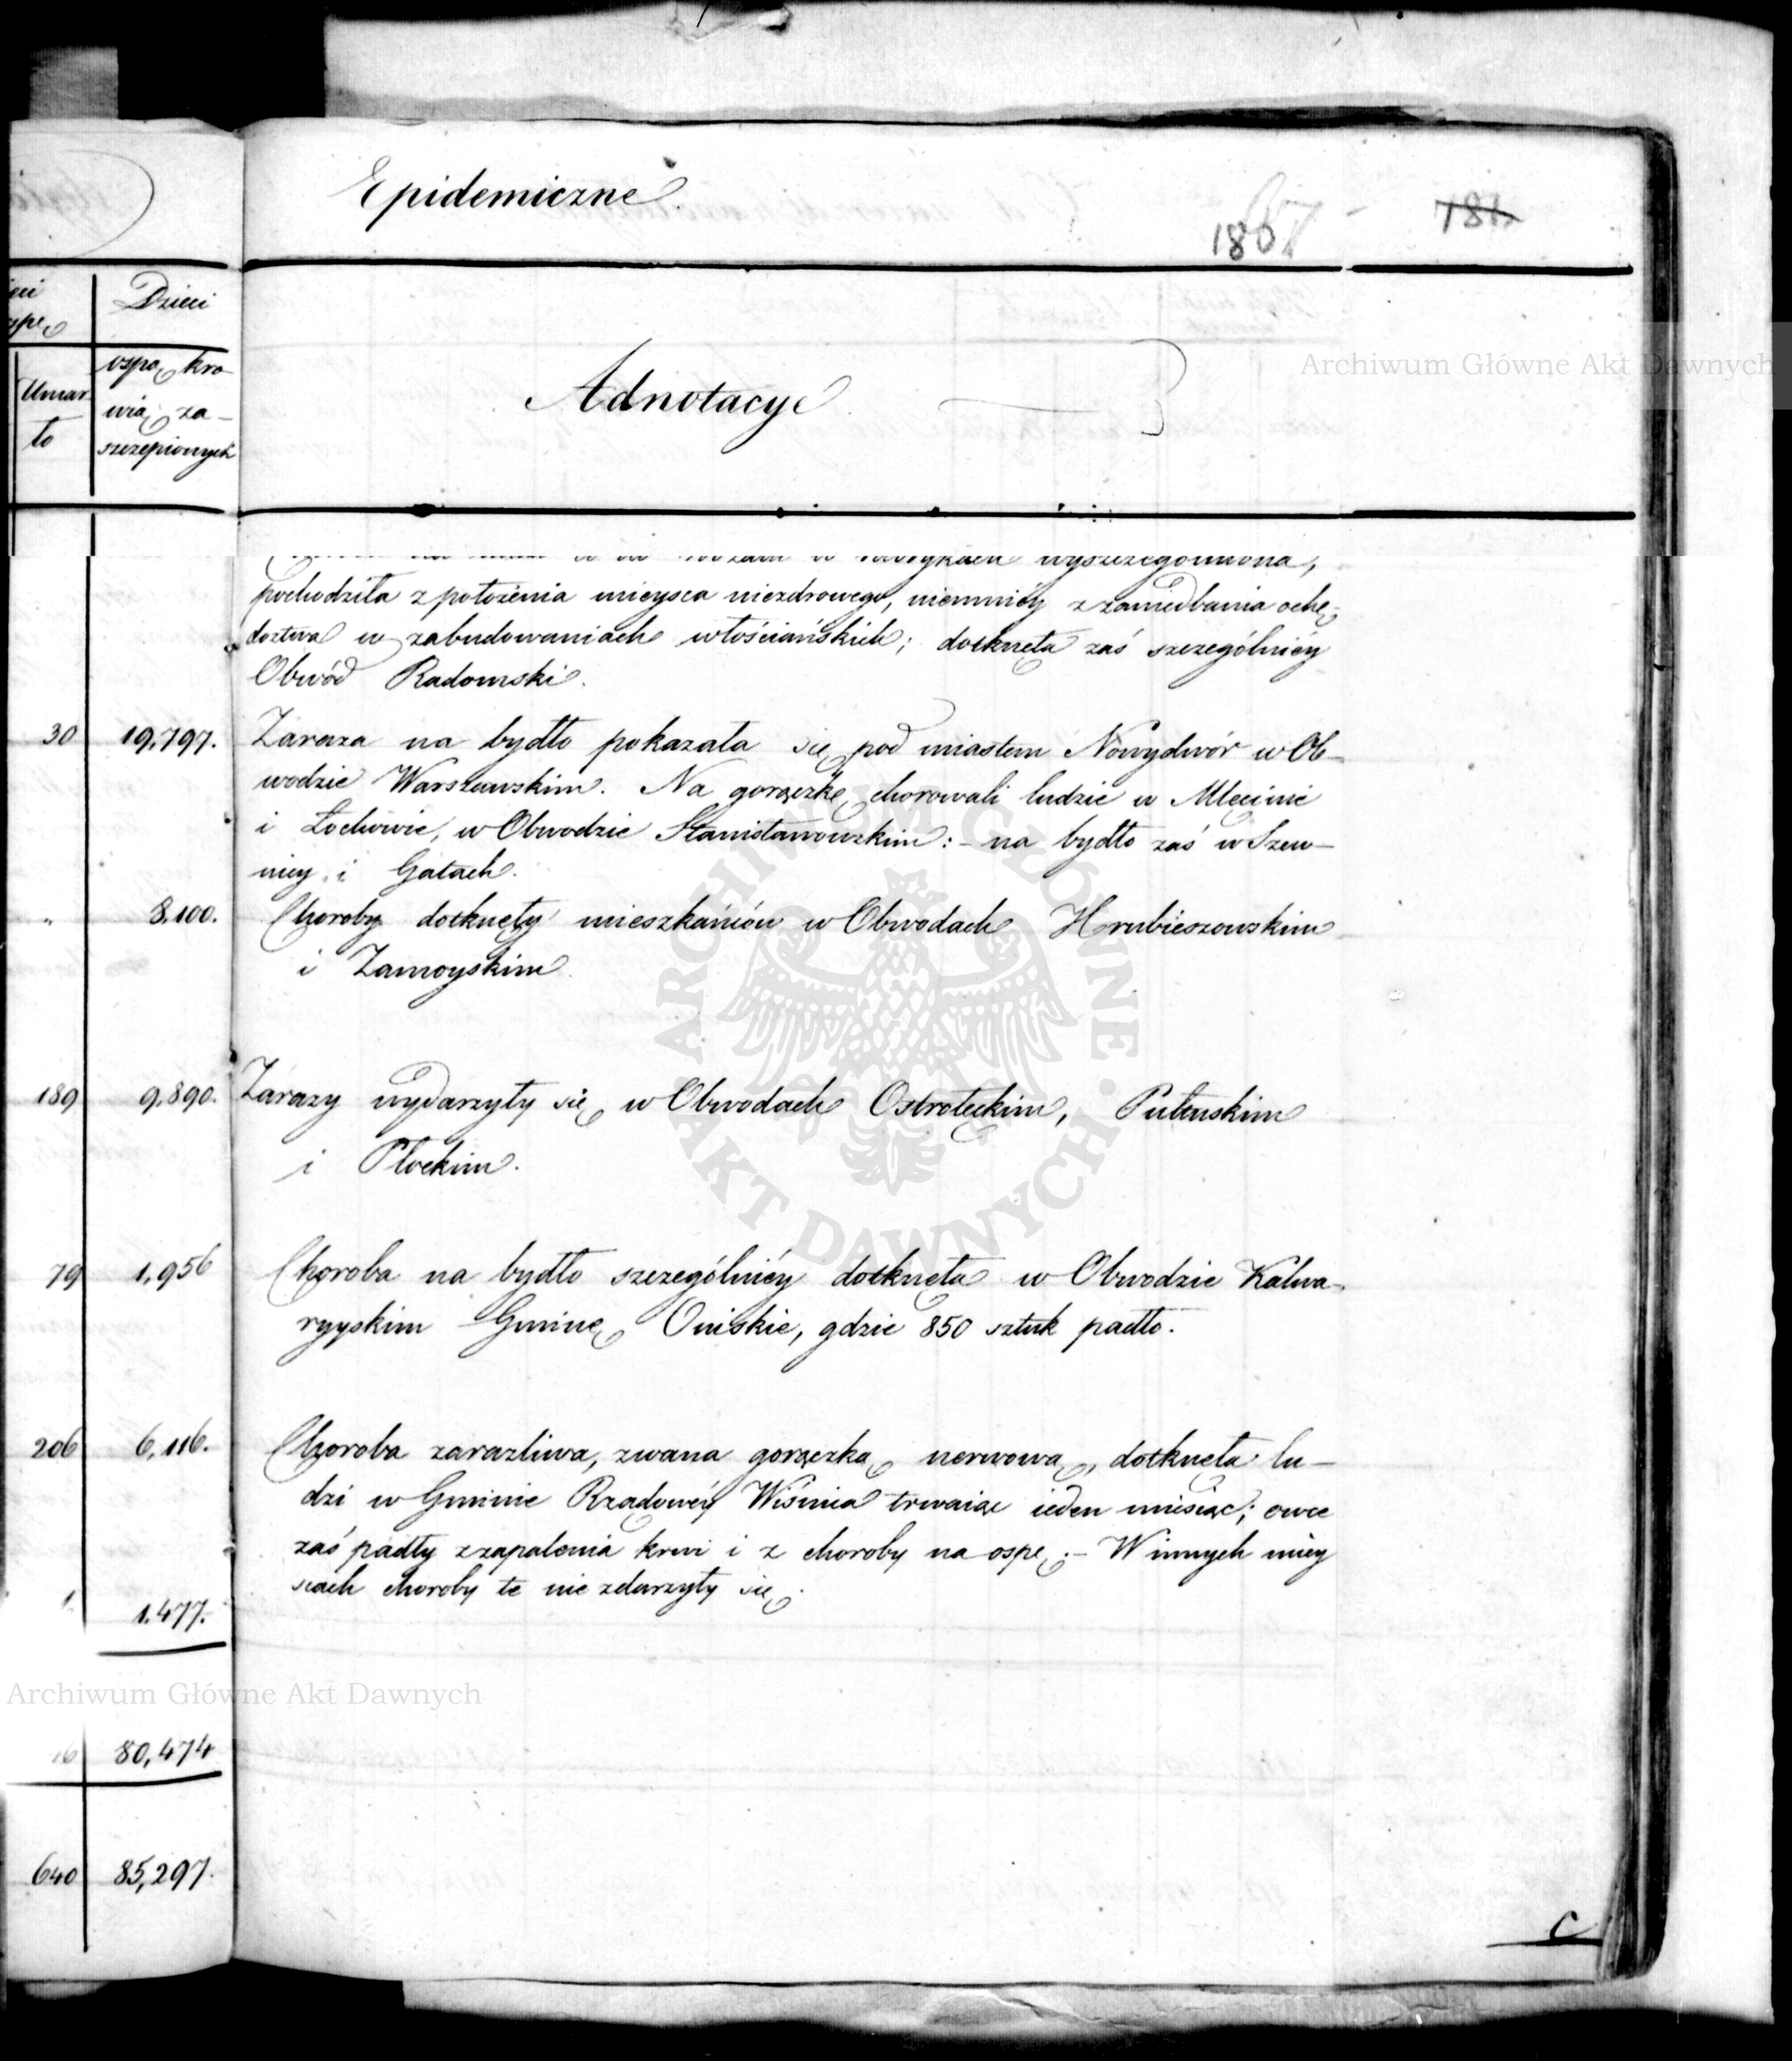 Epidemiczne.
186
181
Dzieci
ospą kro
wią za-
szczepionych
Umar
ło
Adnotacye
Archiwum Główne Akt Dawnych
wyszczególniona,
pochodziła z położenia mieysca niezdrowego, niemniéy z zaniedbania ochę-
dóstwa w zabudowaniach włościańskich; dotknęła zaś szczególniéy
Obwód Radomski.
30 19,797. Zaraza na bydło pokazała się pod miastem Nowydwór w Ob-
wodzie Warszawskim. Na gorączkę chorowali ludzie w Mlęcinie
i Łochowie, w Obwodzie Stanisławowskim: - na bydło zaś w Szew-
nicy i Gałach.
" 8,100. Choroby dotknęły mieszkańców w Obwodach Hrubieszowskim
i Zamoyskim.
189 9,890. Zarazy wydarzyły się w Obwodach Ostrołęckim, Pułtuskim
i Płockim.
79 1,956 Choroba na bydło szczególniéy dotknęła w Obwodzie Kalwa-
ryyskim Gminę Oniskie, gdzie 850 sztuk padło.
206 6,116. Choroba zaraźliwa, zwana gorączką nerwową, dotknęła lu-
dzi w Gminie Rządowéy Wiśnia trwaiąc ieden miesiąc; owce
zaś padły z zapalenia krwi i z choroby na ospę. - W innych miey
scach choroby te nie zdarzyły się.
1 1.477.
Archiwum Główne Akt Dawnych
16 80,474
640 85,297.
C
ARCHIWUM GŁÓWNE AKT DAWNYCH